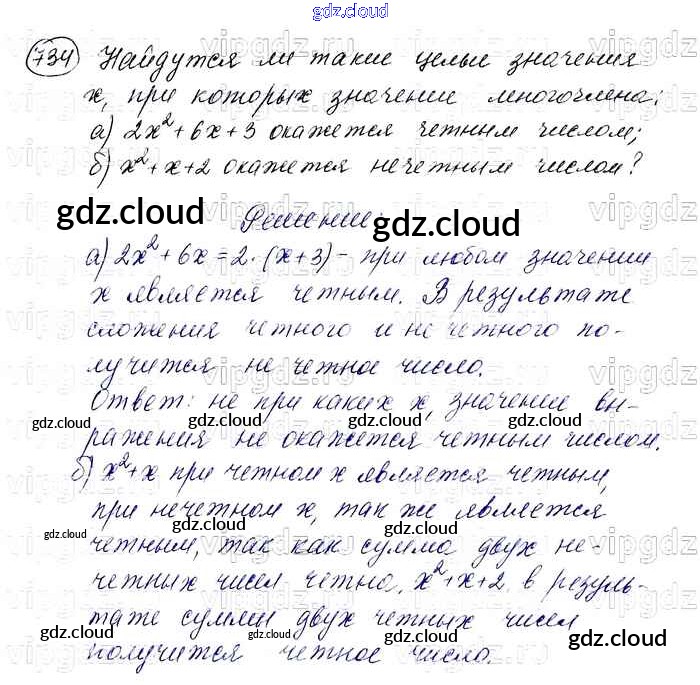 gdz.cloud
734 Найдутся ли такие целые значения
x, при которых значение многочлена:
а) 2x²+6x+3 окажется четным числом;
б) x²+x+2 окажется нечетным числом?
gdz.cloud Решение: gdz.cloud
а) 2x²+6x=2·(x+3) - при любом значении
x является четным. В результате
сложения четного и нечетного по-
лучится не четное число.
Ответ: не при каких x, значение вы-
gdz.cloud gdz.cloud gdz.cloud
ражения не окажется четным числом.
б) x²+x при четном x является четным,
при нечетном x, так же является
gdz.cloud gdz.cloud
четным, так как сумма двух не-
четных чисел четно. x²+x+2 в резуль-
тате суммы двух четных чисел
gdz.cloud gdz.cloud gdz.cloud
получится четное число.